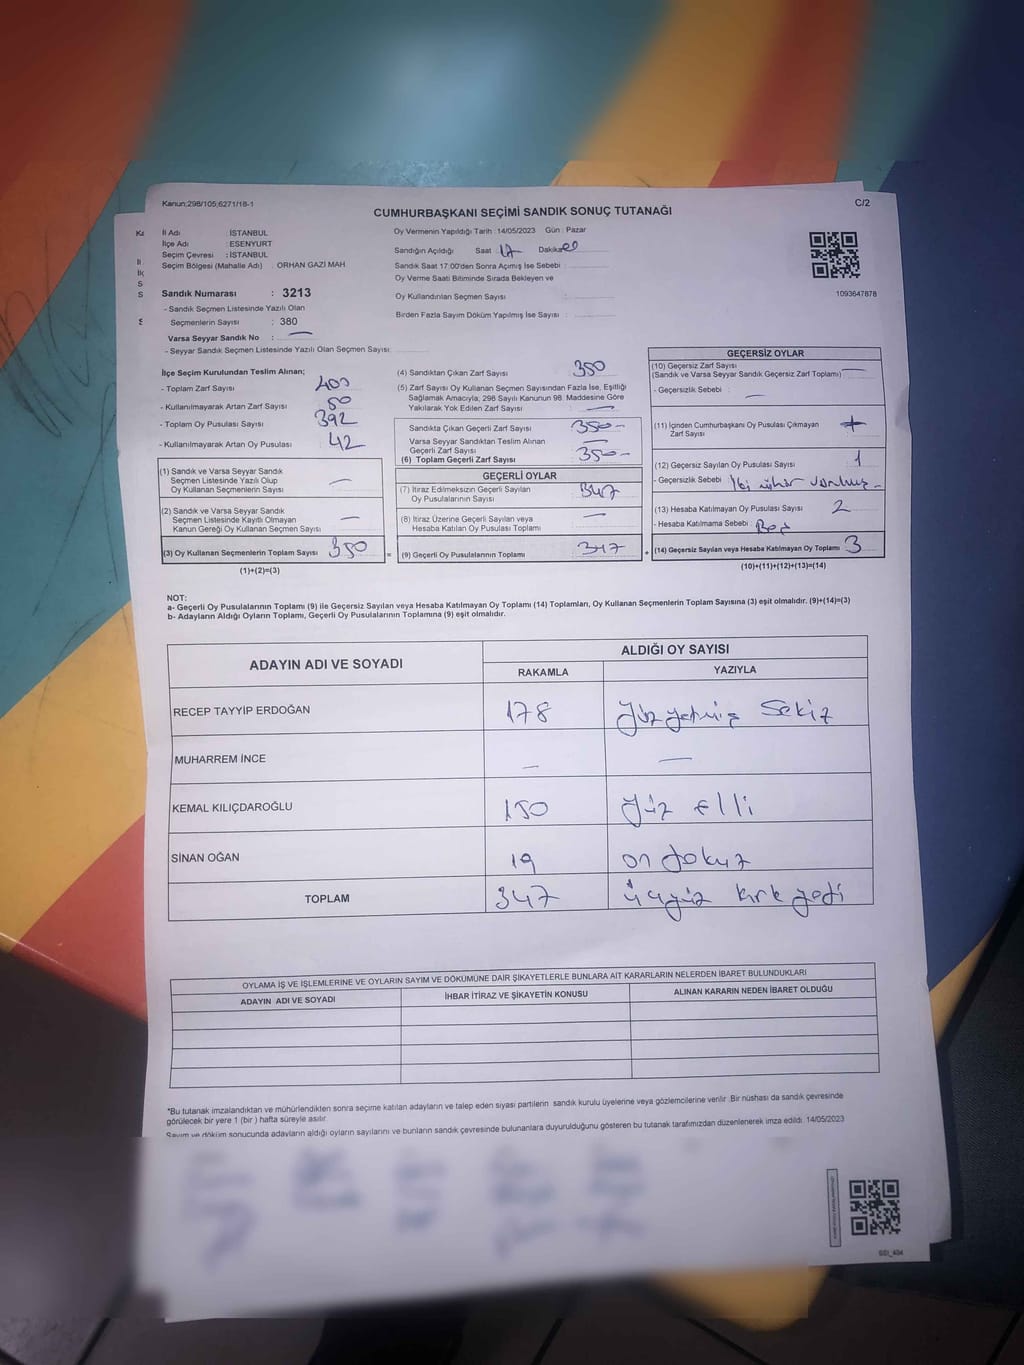 Kanun;298/105;6271/18-1
C/2
CUMHURBAŞKANI SEÇİMİ SANDIK SONUÇ TUTANAĞI
İl Adı : İSTANBUL
İlçe Adı : ESENYURT
Seçim Çevresi : İSTANBUL
Seçim Bölgesi (Mahalle Adı) : ORHAN GAZİ MAH.
Sandık Numarası : 3213
- Sandık Seçmen Listesinde Yazılı Olan
Seçmenlerin Sayısı : 380
Varsa Seyyar Sandık No : —
- Seyyar Sandık Seçmen Listesinde Yazılı Olan Seçmen Sayısı:
Oy Vermenin Yapıldığı Tarih :14/05/2023 Gün : Pazar
Sandığın Açıldığı Saat 17 Dakika
Sandık Saat 17:00'den Sonra Açımış İse Sebebi :
Oy Verme Saati Bitiminde Sırada Bekleyen ve
Oy Kullandırılan Seçmen Sayısı :
Birden Fazla Sayım Döküm Yapılmış İse Sayısı :
1093647878
İlçe Seçim Kurulundan Teslim Alınan;
- Toplam Zarf Sayısı 400
- Kullanılmayarak Artan Zarf Sayısı 50
- Toplam Oy Pusulası Sayısı 392
- Kullanılmayarak Artan Oy Pusulası 42
(1) Sandık ve Varsa Seyyar Sandık
Seçmen Listesinde Yazılı Olup
Oy Kullanan Seçmenlerin Sayısı —
(2) Sandık ve Varsa Seyyar Sandık
Seçmen Listesinde Kayıtlı Olmayan
Kanun Gereği Oy Kullanan Seçmen Sayısı —
(3) Oy Kullanan Seçmenlerin Toplam Sayısı 350
(1)+(2)=(3)
=
(4) Sandıktan Çıkan Zarf Sayısı 350
(5) Zarf Sayısı Oy Kullanan Seçmen Sayısından Fazla İse, Eşitliği
Sağlamak Amacıyla; 298 Sayılı Kanunun 98. Maddesine Göre
Yakılarak Yok Edilen Zarf Sayısı —
Sandıkta Çıkan Geçerli Zarf Sayısı 350-
Varsa Seyyar Sandıktan Teslim Alınan
Geçerli Zarf Sayısı —
(6) Toplam Geçerli Zarf Sayısı 350-
GEÇERLİ OYLAR
(7) İtiraz Edilmeksizin Geçerli Sayılan
Oy Pusulalarının Sayısı 347
(8) İtiraz Üzerine Geçerli Sayılan veya
Hesaba Katılan Oy Pusulası Toplamı —
(9) Geçerli Oy Pusulalarının Toplamı 347
+
GEÇERSİZ OYLAR
(10) Geçersiz Zarf Sayısı
(Sandık ve Varsa Seyyar Sandık Geçersiz Zarf Toplamı) —
- Geçersizlik Sebebi : —
(11) İçinden Cumhurbaşkanı Oy Pusulası Çıkmayan
Zarf Sayısı
(12) Geçersiz Sayılan Oy Pusulası Sayısı 1
- Geçersizlik Sebebi İki mühür
(13) Hesaba Katılmayan Oy Pusulası Sayısı 2
- Hesaba Katılmama Sebebi : Boş
(14) Geçersiz Sayılan veya Hesaba Katılmayan Oy Toplamı 3
(10)+(11)+(12)+(13)=(14)
NOT:
a- Geçerli Oy Pusulalarının Toplamı (9) ile Geçersiz Sayılan veya Hesaba Katılmayan Oy Toplamı (14) Toplamları, Oy Kullanan Seçmenlerin Toplam Sayısına (3) eşit olmalıdır. (9)+(14)=(3)
b- Adayların Aldığı Oyların Toplamı, Geçerli Oy Pusulalarının Toplamına (9) eşit olmalıdır.
ADAYIN ADI VE SOYADI
ALDIĞI OY SAYISI
RAKAMLA YAZIYLA
RECEP TAYYİP ERDOĞAN 178 Yüz yetmiş Sekiz
MUHARREM İNCE — —
KEMAL KILIÇDAROĞLU 150 Yüz elli
SİNAN OĞAN 19 on dokuz
TOPLAM 347 üçyüz kırk yedi
OYLAMA İŞ VE İŞLEMLERİNE VE OYLARIN SAYIM VE DÖKÜMÜNE DAİR ŞİKAYETLERLE BUNLARA AİT KARARLARIN NELERDEN İBARET BULUNDUKLARI
ADAYIN ADI VE SOYADI İHBAR İTİRAZ VE ŞİKAYETİN KONUSU ALINAN KARARIN NEDEN İBARET OLDUĞU
*Bu tutanak imzalandıktan ve mühürlendikten sonra seçime katılan adayların ve talep eden siyasi partilerin sandık kurulu üyelerine veya gözlemcilerine verilir. Bir nüshası da sandık çevresinde
görülecek bir yere 1 (bir ) hafta süreyle asılır.
Sayım ve döküm sonucunda adayların aldığı oyların sayılarını ve bunların sandık çevresinde bulunanlara duyurulduğunu gösteren bu tutanak tarafımızdan düzenlenerek imza edildi. 14/05/2023